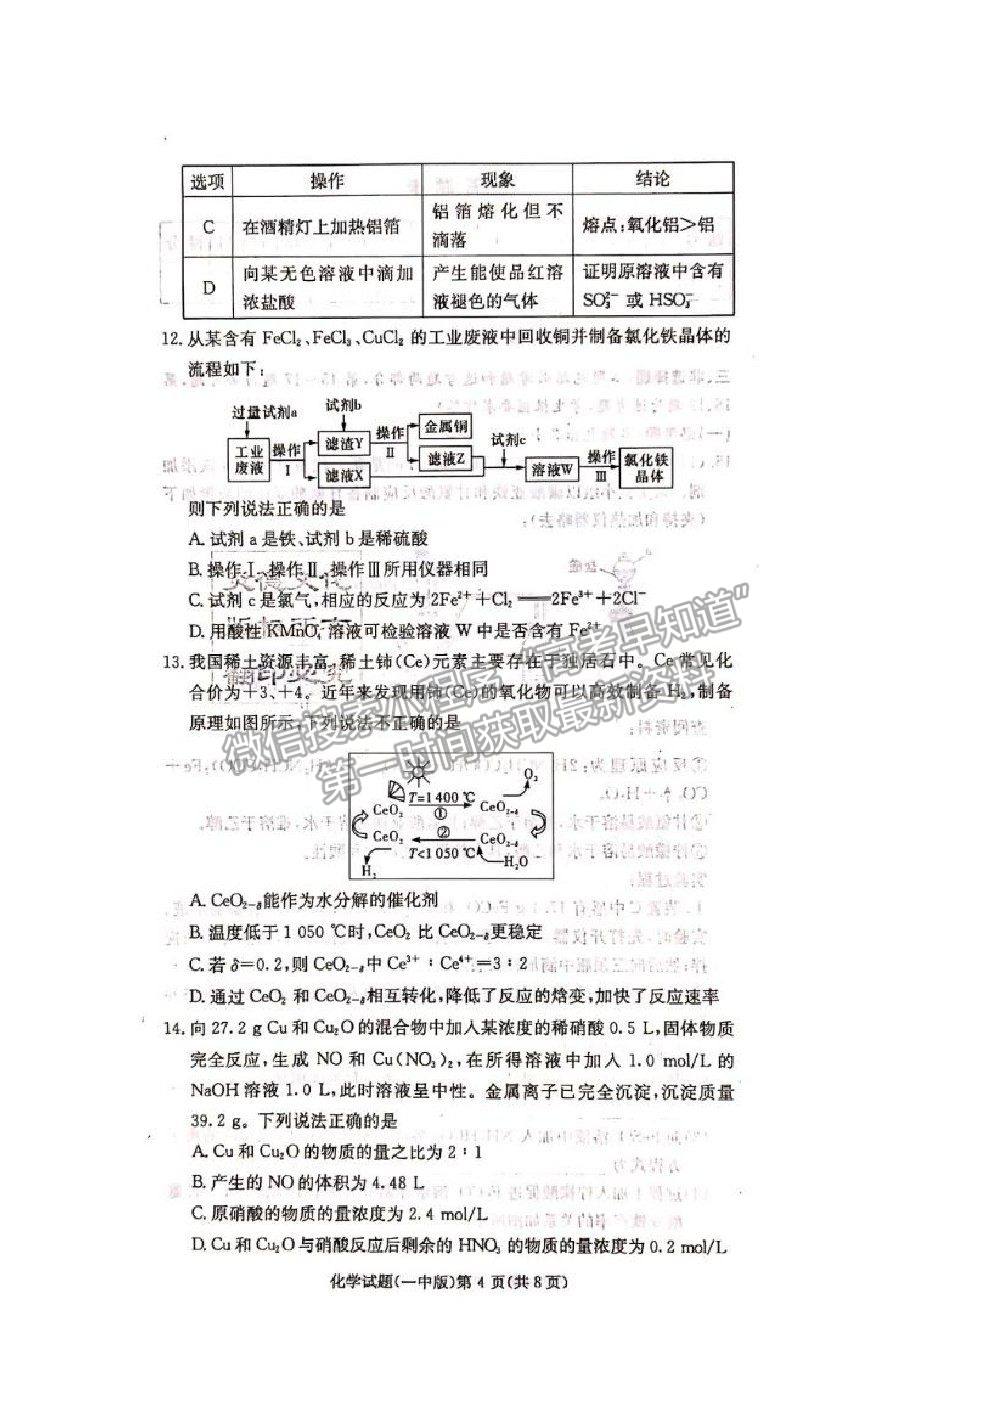 选项 操作 现象 结论
C 在酒精灯上加热铝箔 铝箔熔化但不滴落 熔点:氧化铝>铝
D 向某无色溶液中滴加浓盐酸 产生能使品红溶液褪色的气体 证明原溶液中含有SO₃²⁻ 或 HSO₃⁻
12. 从某含有 FeCl₂、FeCl₃、CuCl₂ 的工业废液中回收铜并制备氯化铁晶体的
流程如下:
过量试剂a 试剂b
工业废液 操作Ⅰ 滤渣Y 滤液X 操作Ⅱ 金属铜 滤液Z 试剂c 溶液W 操作Ⅲ 氯化铁晶体
则下列说法正确的是
A. 试剂 a 是铁、试剂 b 是稀硫酸
B. 操作Ⅰ、操作Ⅱ、操作Ⅲ所用仪器相同
C. 试剂 c 是氯气,相应的反应为 2Fe²⁺+Cl₂══2Fe³⁺+2Cl⁻
D. 用酸性 KMnO₄ 溶液可检验溶液 W 中是否含有
13. 我国稀土资源丰富,稀土铈(Ce)元素主要存在于独居石中。Ce 常见化
合价为+3、+4。近年来发现用铈(Ce)的氧化物可以高效制备 H₂,制备
原理如图所示,下列说法不正确的是
O₂
T=1400 ℃
CeO₂ ① CeO₂₋δ
CeO₂ ② CeO₂₋δ
T<1050 ℃
H₂ H₂O
A. CeO₂₋δ能作为水分解的催化剂
B. 温度低于 1 050 ℃时,CeO₂ 比 CeO₂₋δ更稳定
C. 若 δ=0.2,则 CeO₂₋δ中 Ce³⁺:Ce⁴⁺=3:2
D. 通过 CeO₂ 和 CeO₂₋δ相互转化,降低了反应的焓变,加快了反应速率
14. 向 27.2 g Cu 和 Cu₂O 的混合物中加入某浓度的稀硝酸 0.5 L,固体物质
完全反应,生成 NO 和 Cu(NO₃)₂,在所得溶液中加入 1.0 mol/L 的
NaOH 溶液 1.0 L,此时溶液呈中性。金属离子已完全沉淀,沉淀质量
39.2 g。下列说法正确的是
A. Cu 和 Cu₂O 的物质的量之比为 2:1
B. 产生的 NO 的体积为 4.48 L
C. 原硝酸的物质的量浓度为 2.4 mol/L
D. Cu 和 Cu₂O 与硝酸反应后剩余的 HNO₃ 的物质的量浓度为 0.2 mol/L
化学试题(一中版)第 4 页(共 8 页)
微信搜索小程序“高考早知道”
第一时间获取最新资料